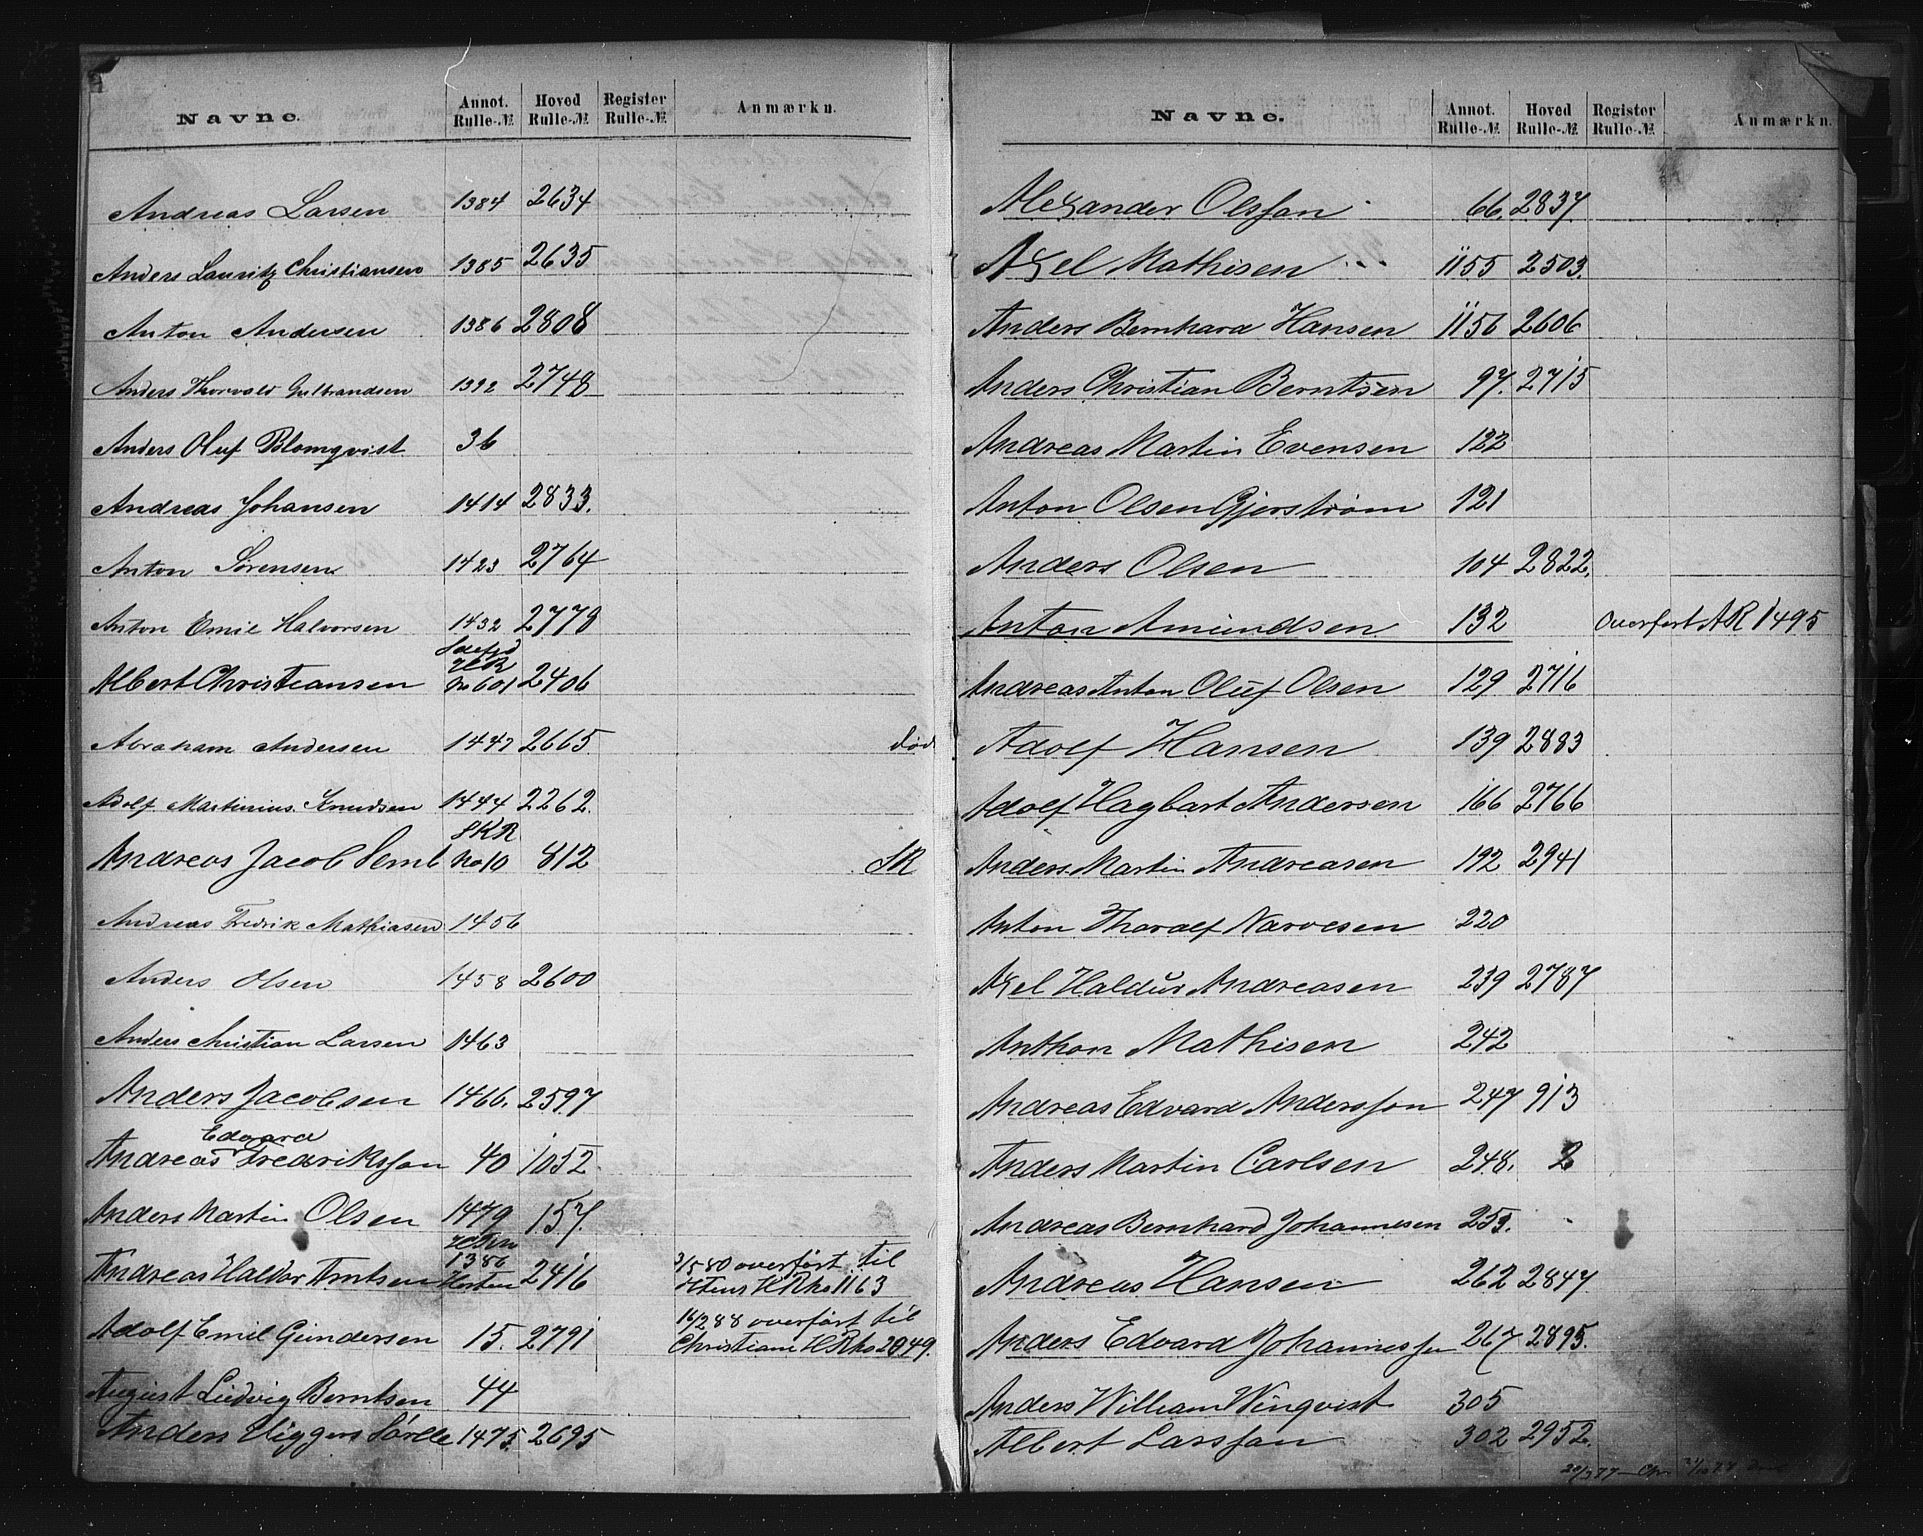 Navne. Annot. Rulle-№ Hoved Rulle-№ Register Rulle-№ Anmærkn.
Andreas Larsen 1384 2634
Anders Lauritz Christiansen 1385 2635
Anton Andersen 1386 2808
Anders Thorvald Gulbrandsen 1392 2748
Anders Oluf Blomqvist 36
Andreas Johansen 1414 2833.
Anton Sørensen 1423 2764
Anton Emil Halvorsen 1432 2779
Albert Christiansen No 601 2406
Abraham Andersen 1447 2665 død
Adolf Martinius Knudsen 1444 2262.
Andreas Jacob Semb SKR No 10 812 SR
Andreas Fredrik Mathiasen 1456
Anders Olsen 1458 2600
Anders Christian Larsen 1463
Anders Jacobsen 1466. 2597
Andreas Edvard Fredriksson 40 1052
Anders Martin Olsen 1479 157.
Andreas Haldor Arntsen 1386 Horten 2416 3/5 80 overført til
HRno 1163
Adolf Emil Gundersen 15. 2791 16/2 88 overført til
Christiania HRno 2049.
August Ludvig Berntsen 44
Anders Viggers Sørlle 1475. 2695
Navne. Annot. Rulle-№ Hoved Rulle-№ Register Rulle-№ Anmærkn.
Alexander Olsson 66. 2837
Axel Mathisen 1155 2503.
Anders Bernhard Hansen 1156 2606
Anders Christian Berntsen 97. 2715
Andreas Martin Evensen 122
Anton Olsen Gjerstrøm 121
Anders Olsen 104 2822.
Anton Amundsen 132 Overført AR 1495
Andreas Anton Oluf Olsen 129 2716
Adolf Hansen 139 2883
Adolf Hagbart Andersen 166 2766
Anders Martin Andreasen 192 2941
Anton Thoralf Narvesen 220
Axel Haldur Andreasen 239 2787
Anthon Mathisen 242
Andreas Edvard Andersson 247 913
Anders Martin Carlsen 248. 2
Andreas Bernhard Johannesen 253.
Andreas Hansen 262 2847
Anders Edvard Johannessen 267 2895.
Anders William Winqvist 305
Albert Larsson 302 2952.